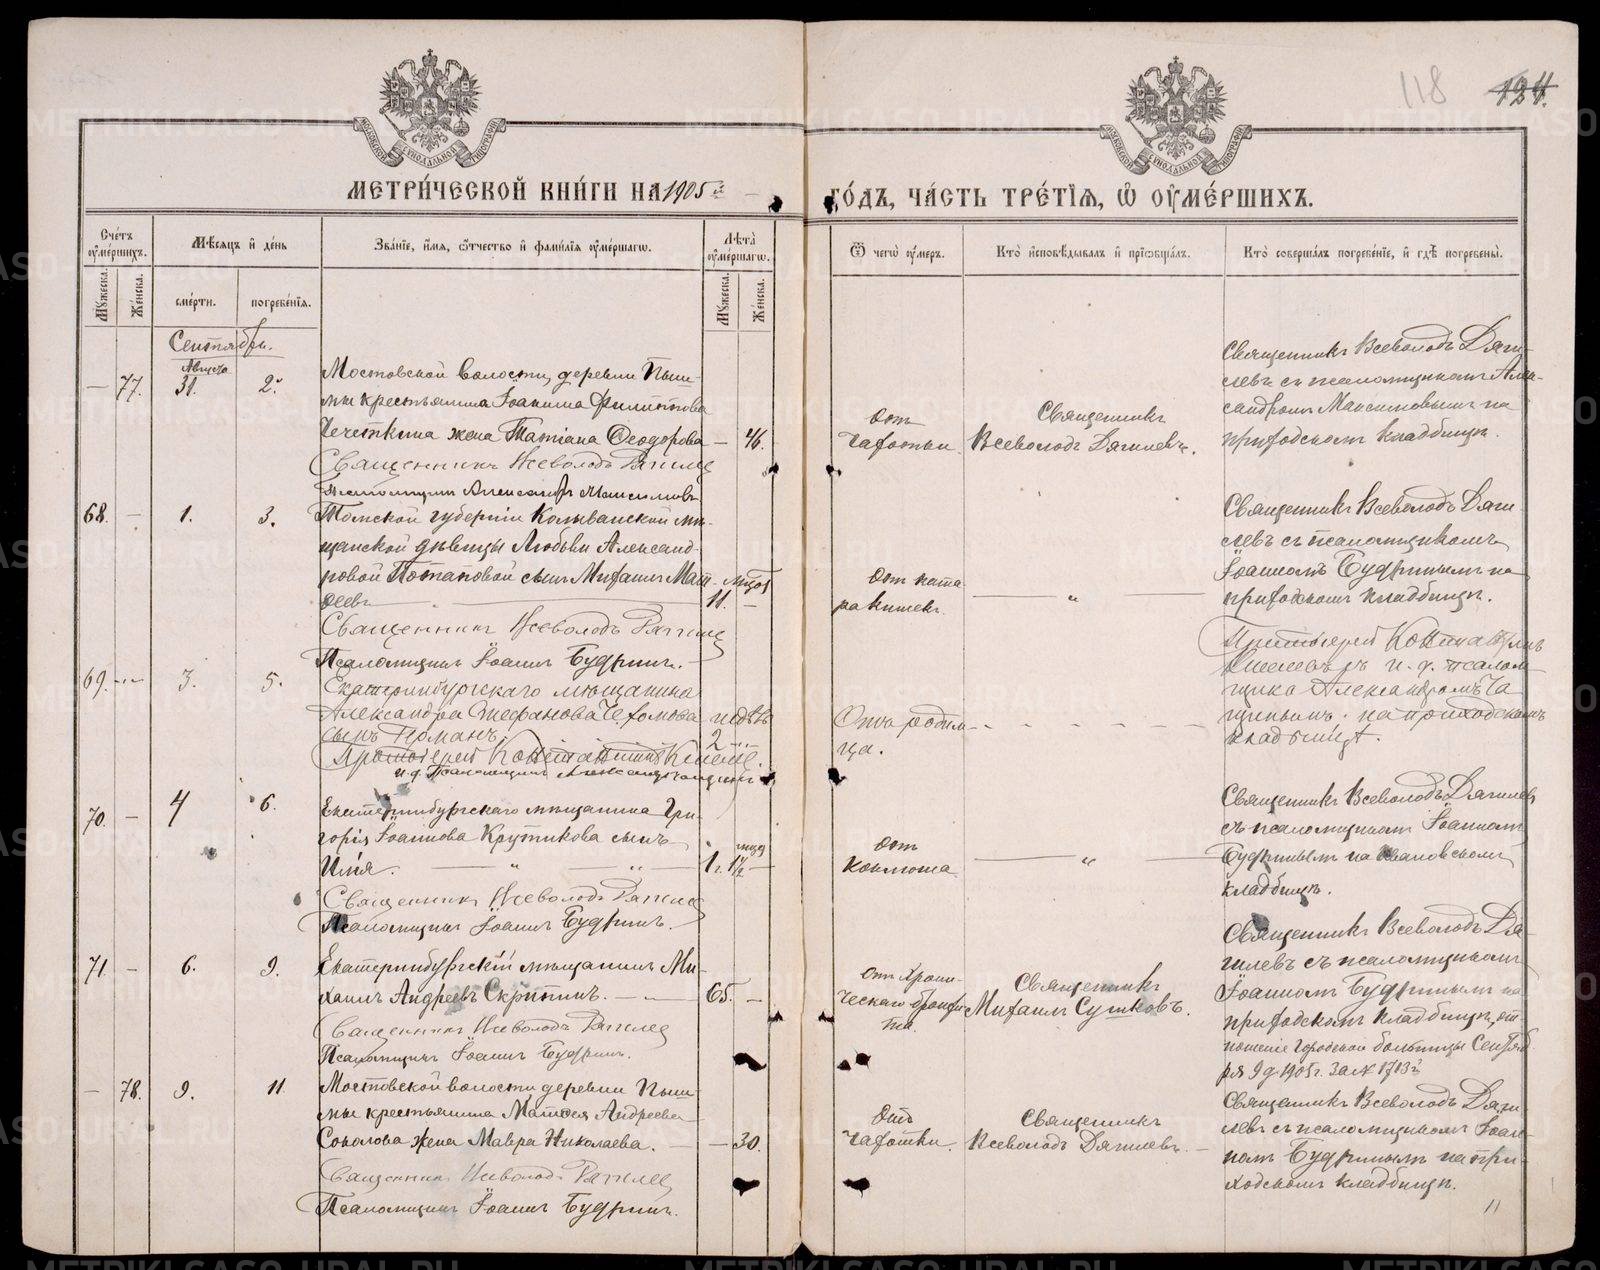 118
124.
МОСКОВСКОЙ СѴНОДАЛЬНОЙ ТИПОГРАФІИ
МОСКОВСКОЙ СѴНОДАЛЬНОЙ ТИПОГРАФІИ
МЕТРИ́ЧЕСКОЙ КНИ́ГИ НА 1905й ГО́ДЪ, ЧА́СТЬ ТРЕ́ТІѦ, Ѡ ОУМЕ́РШИХЪ.
Сче́тъ оуме́ршихъ.
Мѣ́сяцъ и де́нь
Зва́нїе, и́мя, о́тчество и фами́лїя оуме́ршагѡ.
Лѣ́та оуме́ршагѡ.
Ѿ чегѡ̀ оу́меръ.
Кто̀ и́сповѣ́дывалъ и́ прїѡбща́лъ.
Кто̀ соверша́лъ погребе́нїе, и́ гдѣ̀ погребены̀.
Мꙋжеска.
Же́нска.
сме́рти.
погребе́нїя.
Мꙋжеска.
Же́нска.
Сентябрь.
Августа
— 77. 31. 2.
Мостовской волости, деревни Пыш-
мы крестьянина Іоанна Филиппова
Чечеткина жена Татіана Ѳеодорова — 46.
Священникъ Всеволодъ Дягилев
Псаломщикъ Александръ Максимовъ
От
чахотки.
Священникъ
Всеволодъ Дягилевъ.
Священникъ Всеволодъ Дяги-
левъ съ псаломщикомъ Алек-
сандромъ Максимовымъ на
приходскомъ кладбищѣ.
68. — 1. 3.
Томской губерніи Колыванской мѣ-
щанской дѣвицы Любови Александ-
ровой Потаповой сынъ Михаилъ Мат-
ѳеевъ
мѣс.
11. —
Священникъ Всеволодъ Дягилев
Псаломщикъ Іоаннъ Будринъ.
От ката-
ра кишекъ.
— „ —
Священникъ Всеволодъ Дяги-
левъ съ псаломщикомъ
Іоанномъ Будринымъ на
приходскомъ кладбищѣ.
69. — 3. 5.
Екатеринбургскаго мѣщанина
Александра Стефанова
сынъ Германъ.
недѣль
2 —
Протоіерей Константинъ
и. д. Псаломщика Александръ
Отъ родим-
ца.
Протоіерей Константинъ
съ и. д. псалом-
щика Александромъ
на приходскомъ
кладбищѣ.
70. — 4 6.
Екатеринбургскаго мѣщанина Гри-
горія Іоаннова Крутикова сынъ
Илія.
мѣс.
1 г. 1½ —
Священникъ Всеволодъ Дягилев
Псаломщикъ Іоаннъ Будринъ.
От
коклюша.
— „ —
Священникъ Всеволодъ Дягилевъ
съ псаломщикомъ Іоанномъ
Будринымъ на Ивановскомъ
кладбищѣ.
71. — 6. 9.
Екатеринбургскій мѣщанинъ Ми-
хаилъ Андреевъ Скрипинъ. — 65. —
Священникъ Всеволодъ Дягилев
Псаломщикъ Іоаннъ Будринъ.
От хрони-
ческаго бронхи-
та.
Священникъ
Михаилъ Сушковъ.
Священникъ Всеволодъ Дя-
гилевъ съ псаломщикомъ
Іоанномъ Будринымъ на
приходскомъ кладбищѣ, от-
ношеніе Городской больницы Сентяб-
ря 9 д. 1905 г. за № 1713й
— 78. 9. 11.
Мостовской волости деревни Пыш-
мы крестьянина Матѳея Андреева
Соколова жена Мавра Николаева. — 30.
Священникъ Всеволодъ Дягилев
Псаломщикъ Іоаннъ Будринъ.
Отъ
чахотки.
Священникъ
Всеволодъ Дягилевъ.
Священникъ Всеволодъ Дяги-
левъ съ псаломщикомъ Іоан-
номъ Будринымъ на при-
ходскомъ кладбищѣ.
11
METRIKI.GASO-URAL.RU